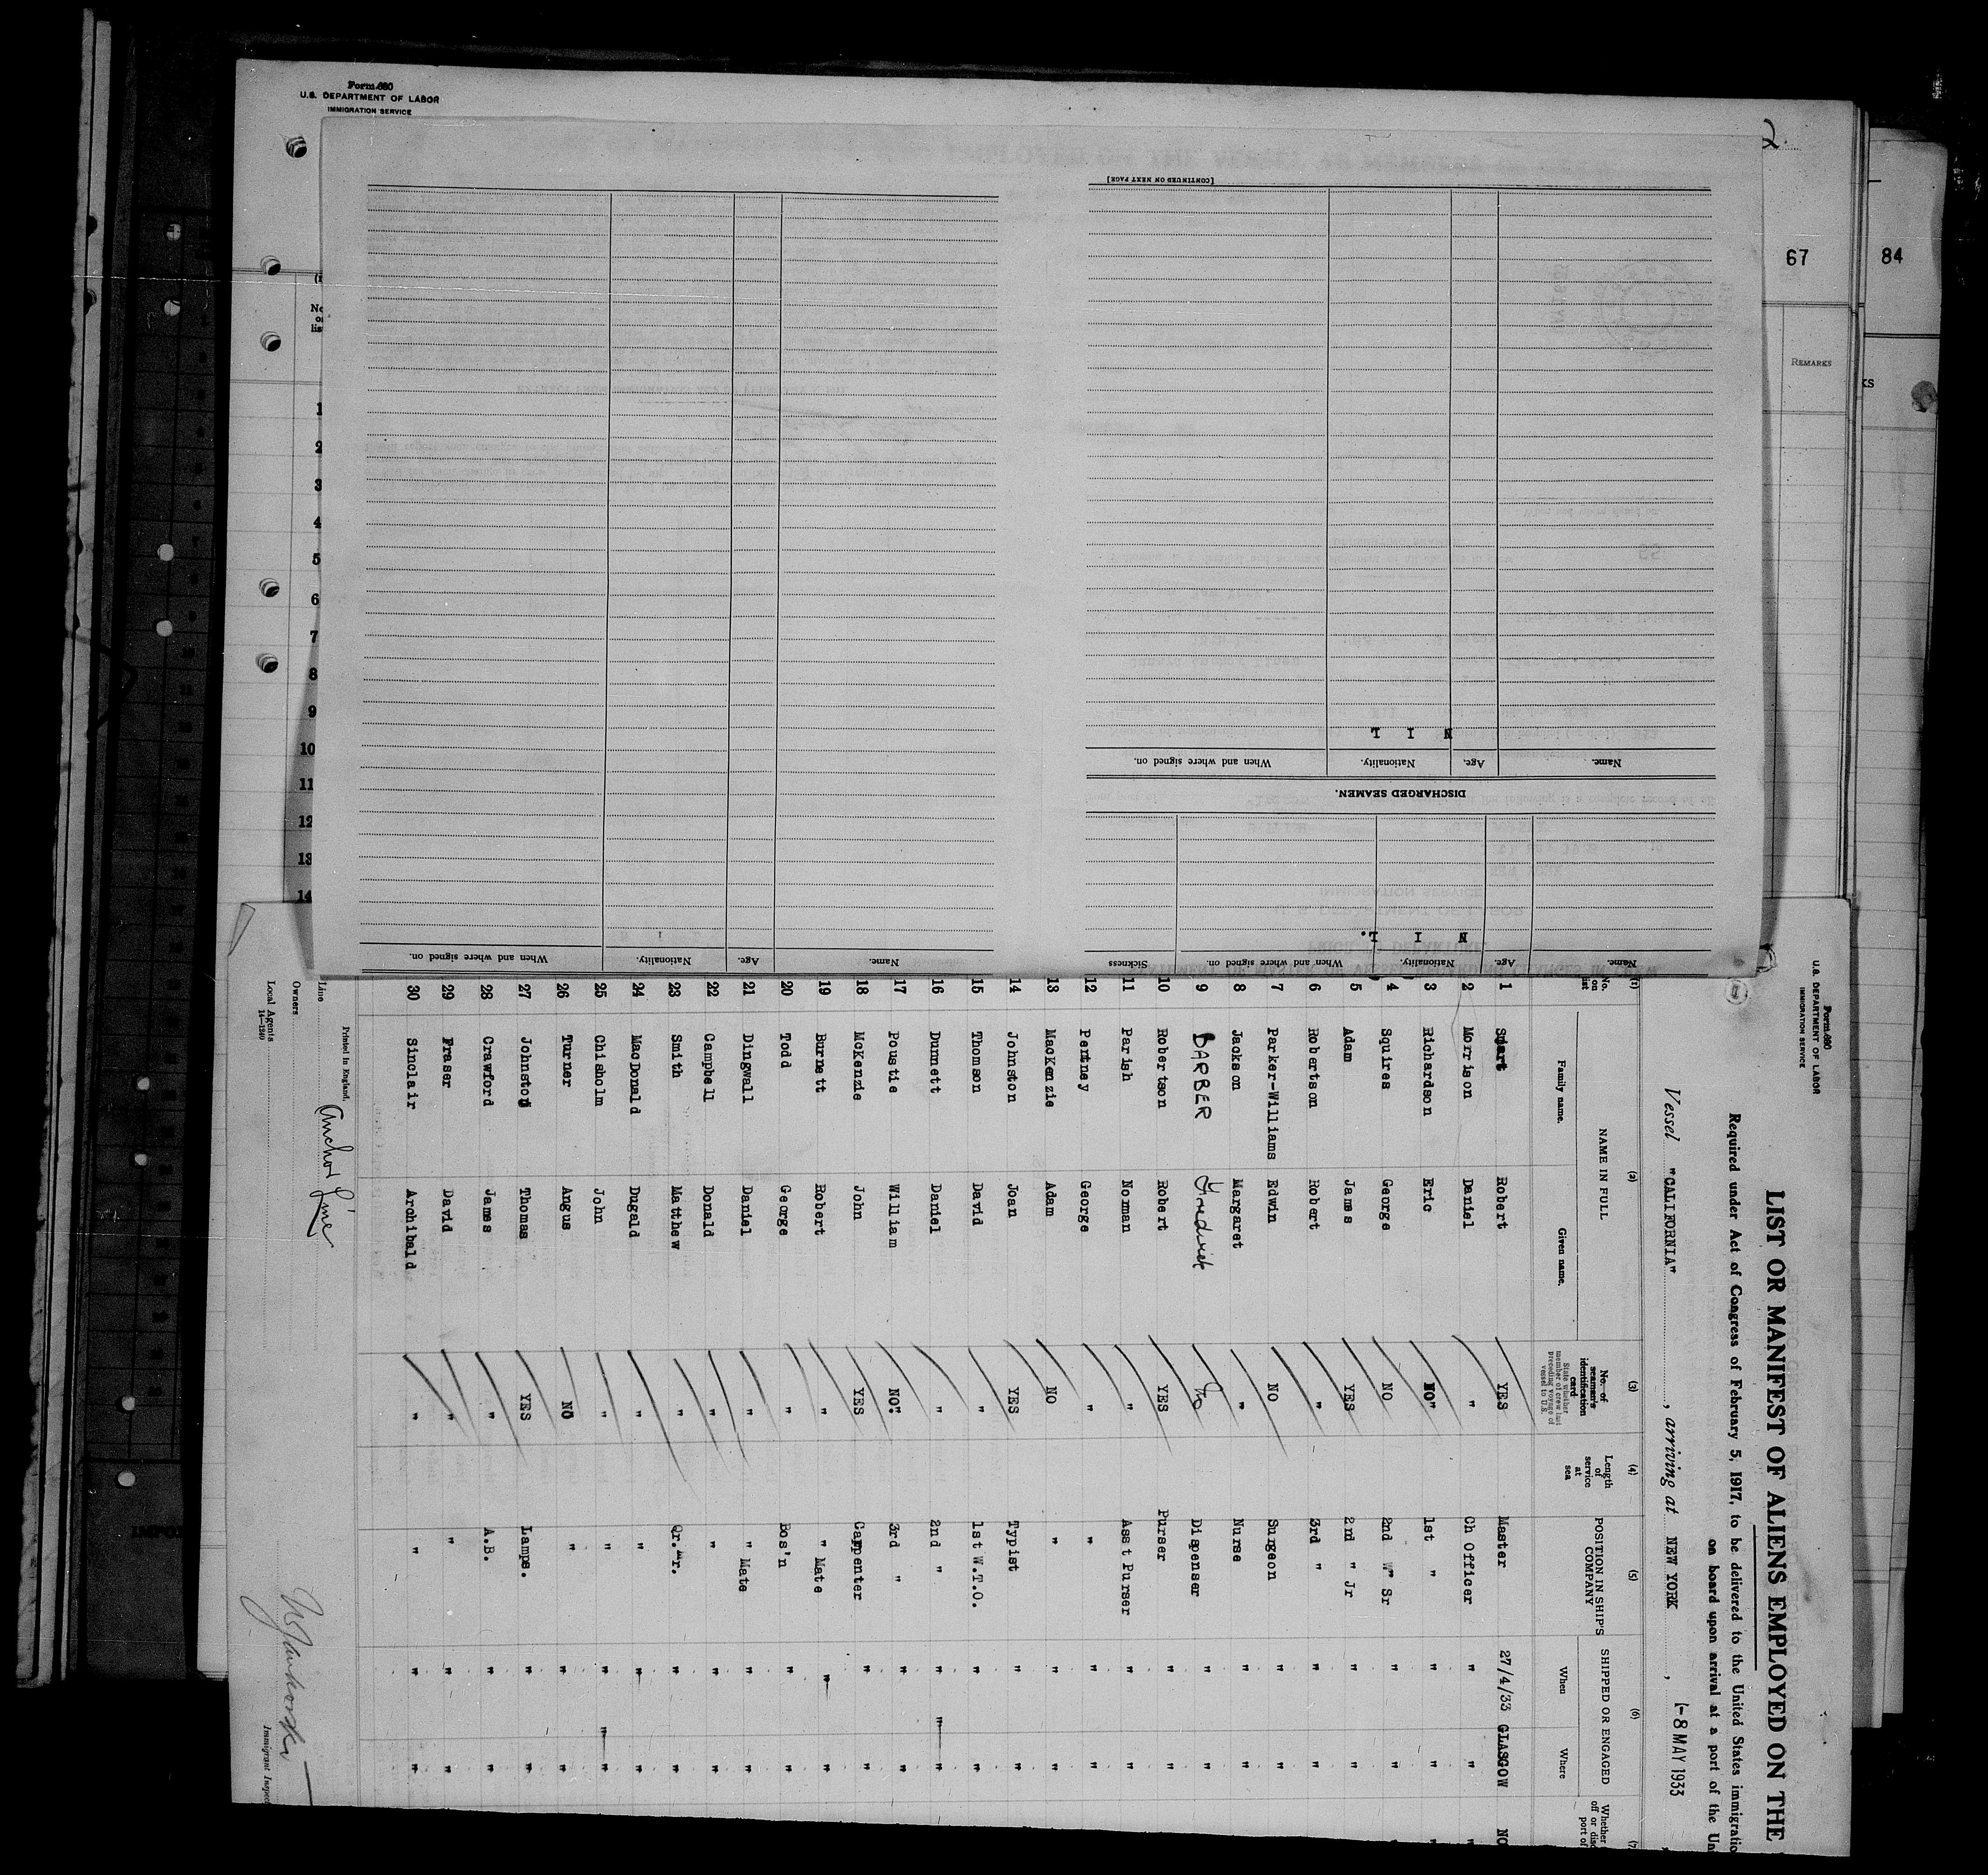 Form 680
U.S. DEPARTMENT OF LABOR
IMMIGRATION SERVICE
2
67
84
REMARKS
KS
1
2
3
4
5
6
7
8
9
10
11
12
13
14
[CONTINUED ON NEXT PAGE]
N I L
Name. Age. Nationality. When and where signed on.
DISCHARGED SEAMEN.
N I L.
Name. Age. Nationality. When and where signed on. Sickness
Name. Age. Nationality. When and where signed on.
Form 680
U.S. DEPARTMENT OF LABOR
IMMIGRATION SERVICE
LIST OR MANIFEST OF ALIENS EMPLOYED ON THE
Required under Act of Congress of February 5, 1917, to be delivered to the United States immigratio
on board upon arrival at a port of the Un
Vessel "CALIFORNIA", arriving at NEW YORK, 8 MAY 1933
(1) (2) (3) (4) (5) (6) (7
No. on list NAME IN FULL Family name. Given name. No. of seaman's identification card State whether member of crew last preceding voyage of vessel to U.S. Length of service at sea POSITION IN SHIP'S COMPANY SHIPPED OR ENGAGED When Where Whether off or disc port of
1 Smart Robert YES Master 27/4/33 GLASGOW NO
2 Morrison Daniel " Ch Officer " " "
3 Richardson Eric NO" 1st " " " "
4 Squires George NO 2nd " Sr " "
5 Adam James YES 2nd " Jr " "
6 Robertson Robert " 3rd " " "
7 Parker-Williams Edwin NO Surgeon " "
8 Jackson Margaret " Nurse " "
9 BARBER Frederick No Dispenser " "
10 Robertson Robert YES Purser " "
11 Parish Norman " Asst Purser " "
12 Pertney George " " " "
13 MacKenzie Adam NO " " "
14 Johnston Joan YES Typist " "
15 Thomson David " 1st W.T.O. " "
16 Dunnett Daniel " 2nd " " "
17 Poustie William NO" 3rd " " "
18 McKenzie John YES Carpenter " "
19 Burnett Robert " " Mate " "
20 Todd George " Bos'n " "
21 Dingwall Daniel " " Mate " "
22 Campbell Donald " " " "
23 Smith Matthew " Qr.Mr. " "
24 MacDonald Dugald " " " "
25 Chisholm John " " " "
26 Turner Angus NO " " "
27 Johnston Thomas YES Lamps. " "
28 Crawford James " A.B. " "
29 Fraser David " " " "
30 Sinclair Archibald " " " "
Printed in England.
Line Anchor Line
Owners
Local Agents
14—1240
Immigrant Inspec